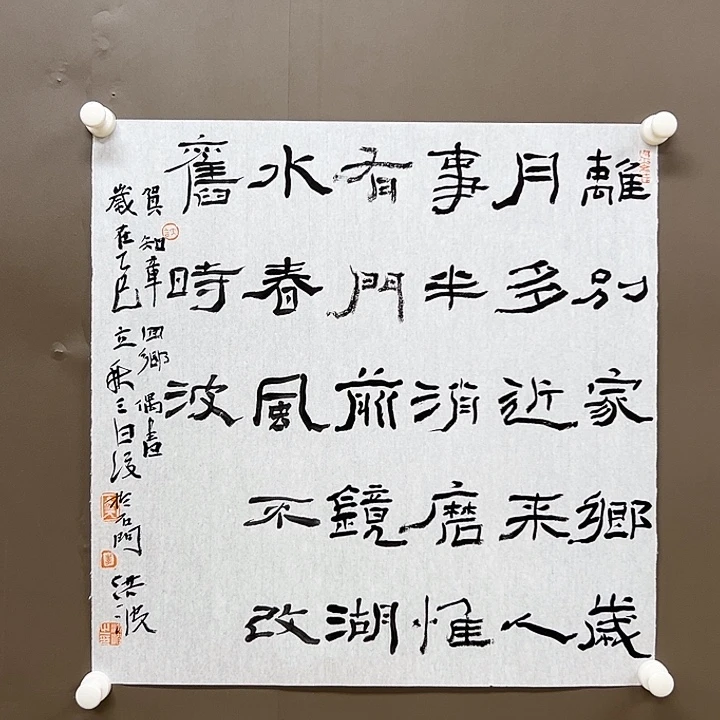 離別家鄉歲
月多近来人
事半消磨惟
有門前鏡湖
水春風不改
舊時波
賀知章回鄉偶書
歲在乙巳立秋三日後於石門洪波